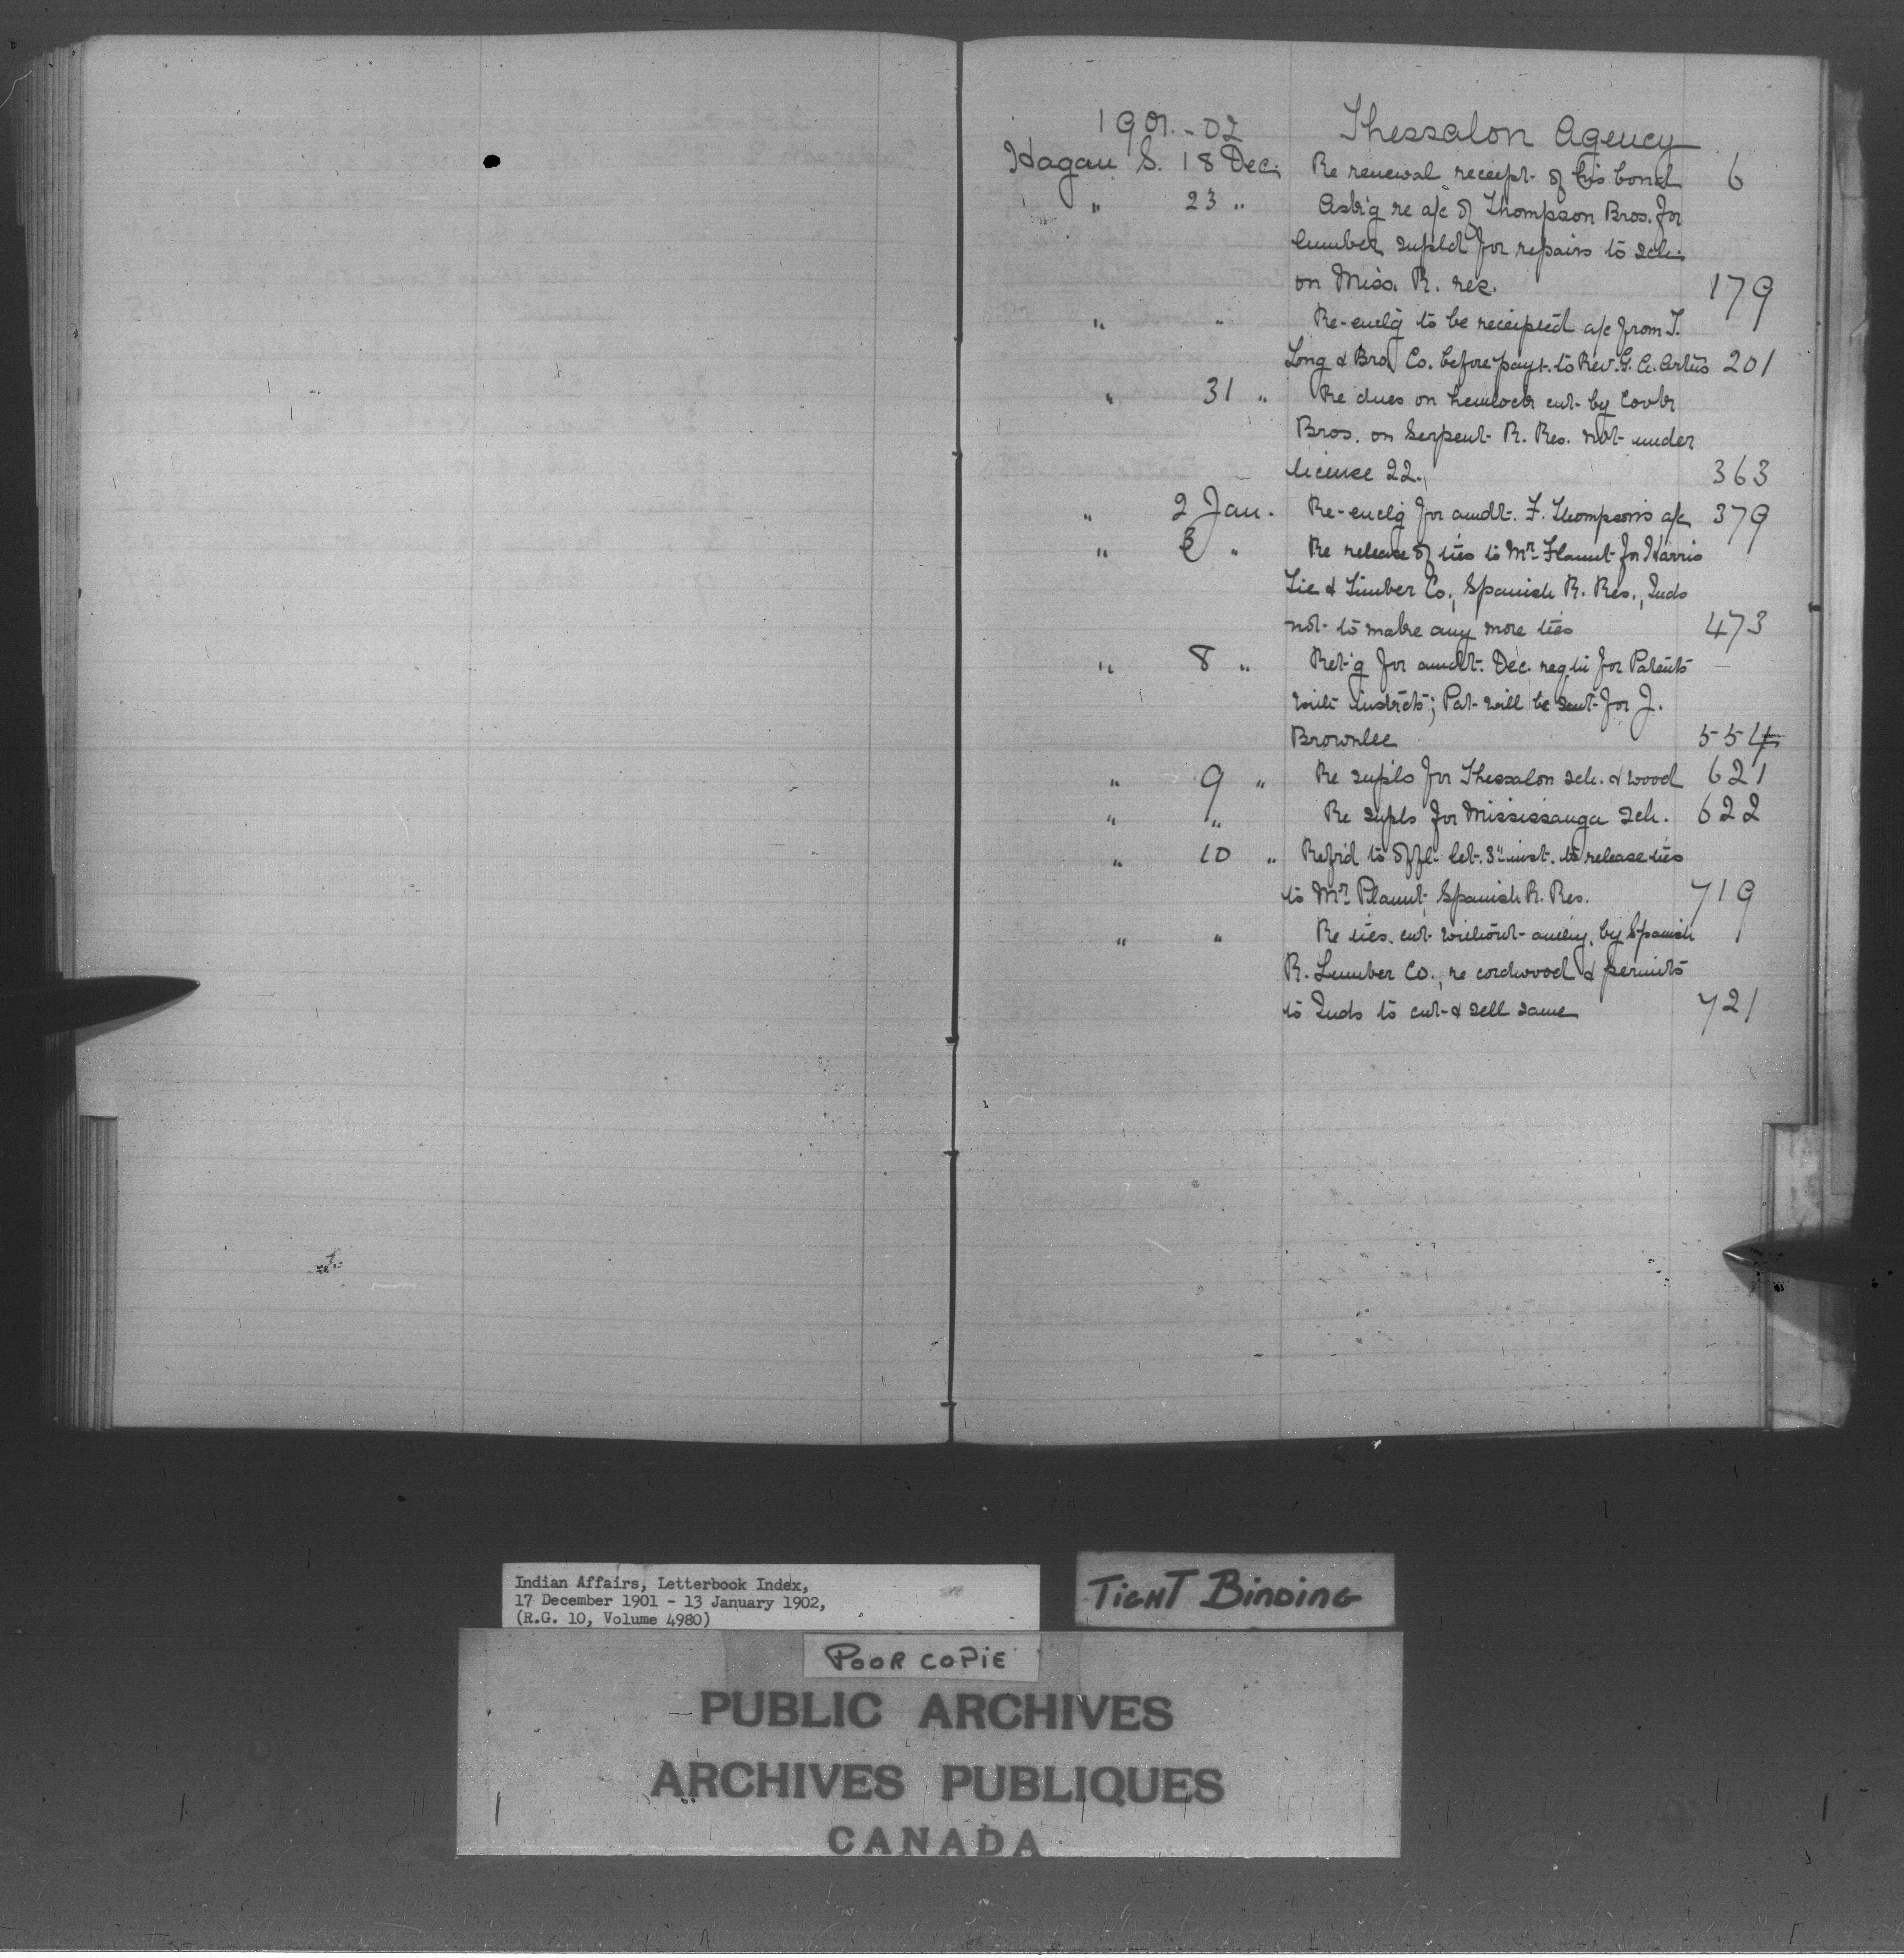 1901.-02 Thessalon Agency
Hagan S. 18 Dec. Re renewal receipt of his bond 6
" 23 " Ask'g re a/c of Thompson Bros. for
lumber supld for repairs to sch.
on Miss. R. res. 179
" " Re-enclg to be receipted a/c from T.
Long & Bro. Co. before payt. to Rev. G. A. Artus 201
" 31 " Re dues on hemlock cut by Cook
Bros. on Serpent R. Res. not under
license 22. 363
" 2 Jan. Re-enclg for amdt. F. Thompson's a/c 379
" 3 " Re release of ties to Mr. Plaunt for Harris
Tie & Timber Co., Spanish R. Res., Inds
not to make any more ties 473
" 8 " Ret'g for amdt. Dec. reqn for Patents
with instrcts; Pat will be sent for J.
Brownlee 554
" 9 " Re supls for Thessalon sch. & wood 621
" " Re supls for Mississauga sch. 622
" 10 " Refrd to offl. let. 3" inst. to release ties
to Mr. Plaunt, Spanish R. Res. 719
" " Re ties cut without authy. by Spanish
R. Lumber Co., re cordwood & permits
to Inds to cut & sell same 721
Indian Affairs, Letterbook Index,
17 December 1901 - 13 January 1902,
(R.G. 10, Volume 4980)
TIGHT BINDING
POOR COPIE
PUBLIC ARCHIVES
ARCHIVES PUBLIQUES
CANADA